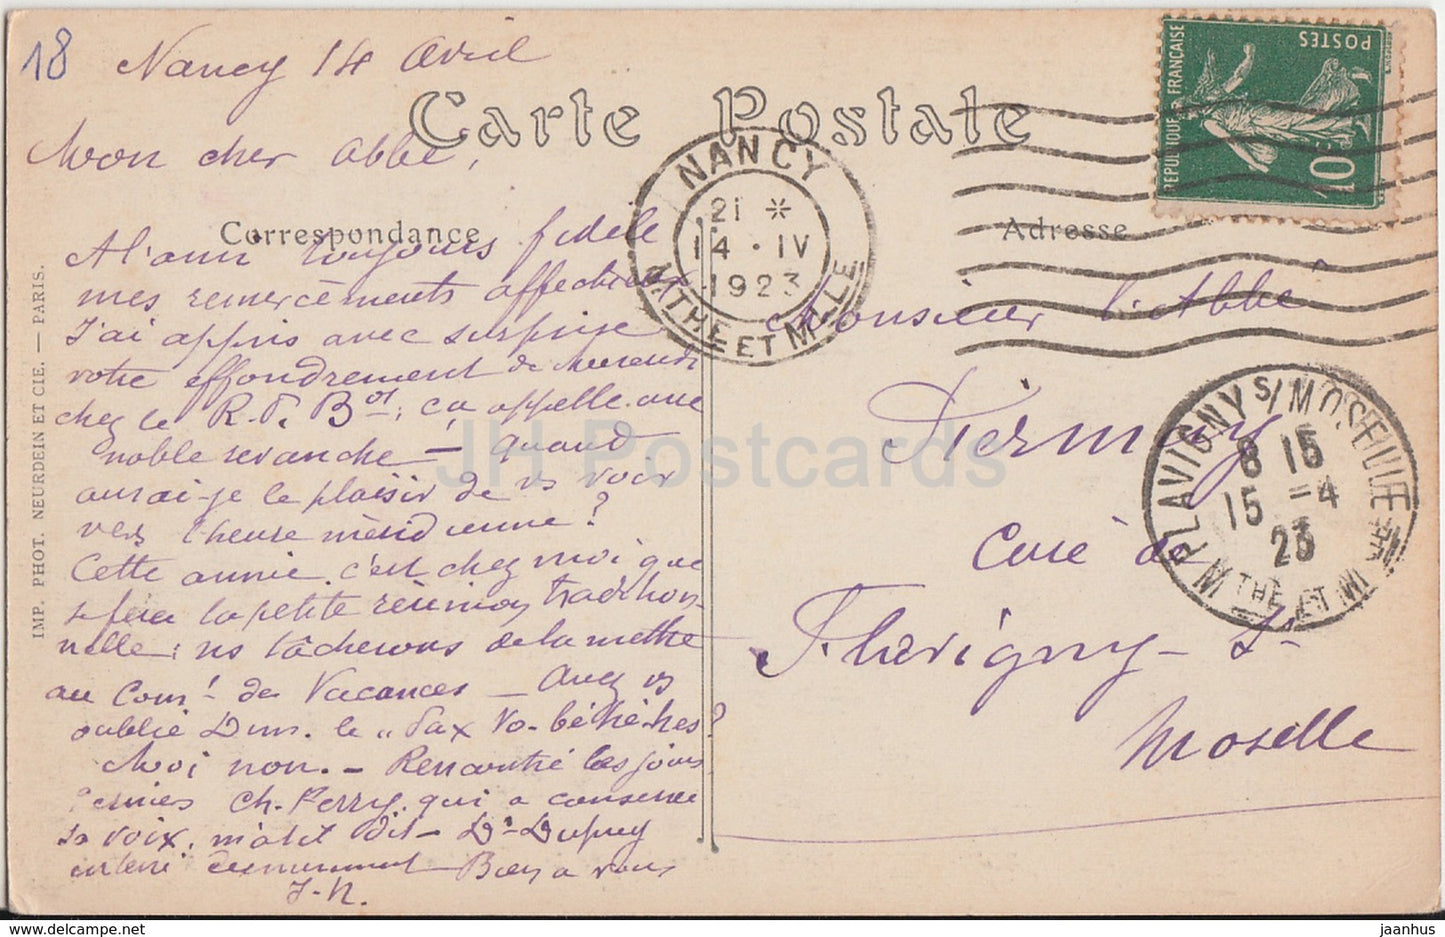 18
Nancy 14 Avril
Carte Postale
Mon cher Abbé,
Correspondance
A l'ami toujours fidèle
mes remercîments affectueux
J'ai appris avec surprise
votre effondrement de mercredi
chez le R. P. B
os
; ça appelle une
noble revanche — Quand
aurai-je le plaisir de vs voir
vers l'heure méridienne?
Cette année c'est chez moi que
se fera la petite réunion tradition-
nelle; ns tâcherons de la mettre
au Com.t des Vacances — Avez vs
oublié Dim. le „Pax Vo-
Moi non. — Rencontré les jours
derniers Ch. Perry, qui a conservé
sa voix, m'a-t-il dit — Dr Dupuy
enlevé Bien à vous
J-N.
IMP. PHOT. NEURDEIN ET CIE. — PARIS.
NANCY
21 *
14 · IV
1923
MTHE ET MLLE
REPUBLIQUE FRANÇAISE
POSTES
10c
Adresse
Monsieur l'Abbé
Diermay
Curé à
Flavigny-s-
Moselle
FLAVIGNY S/MOSELLE
8 15
15 -4
23
MTHE ET M
JH Postcards
jaanhus @ delcampe.net